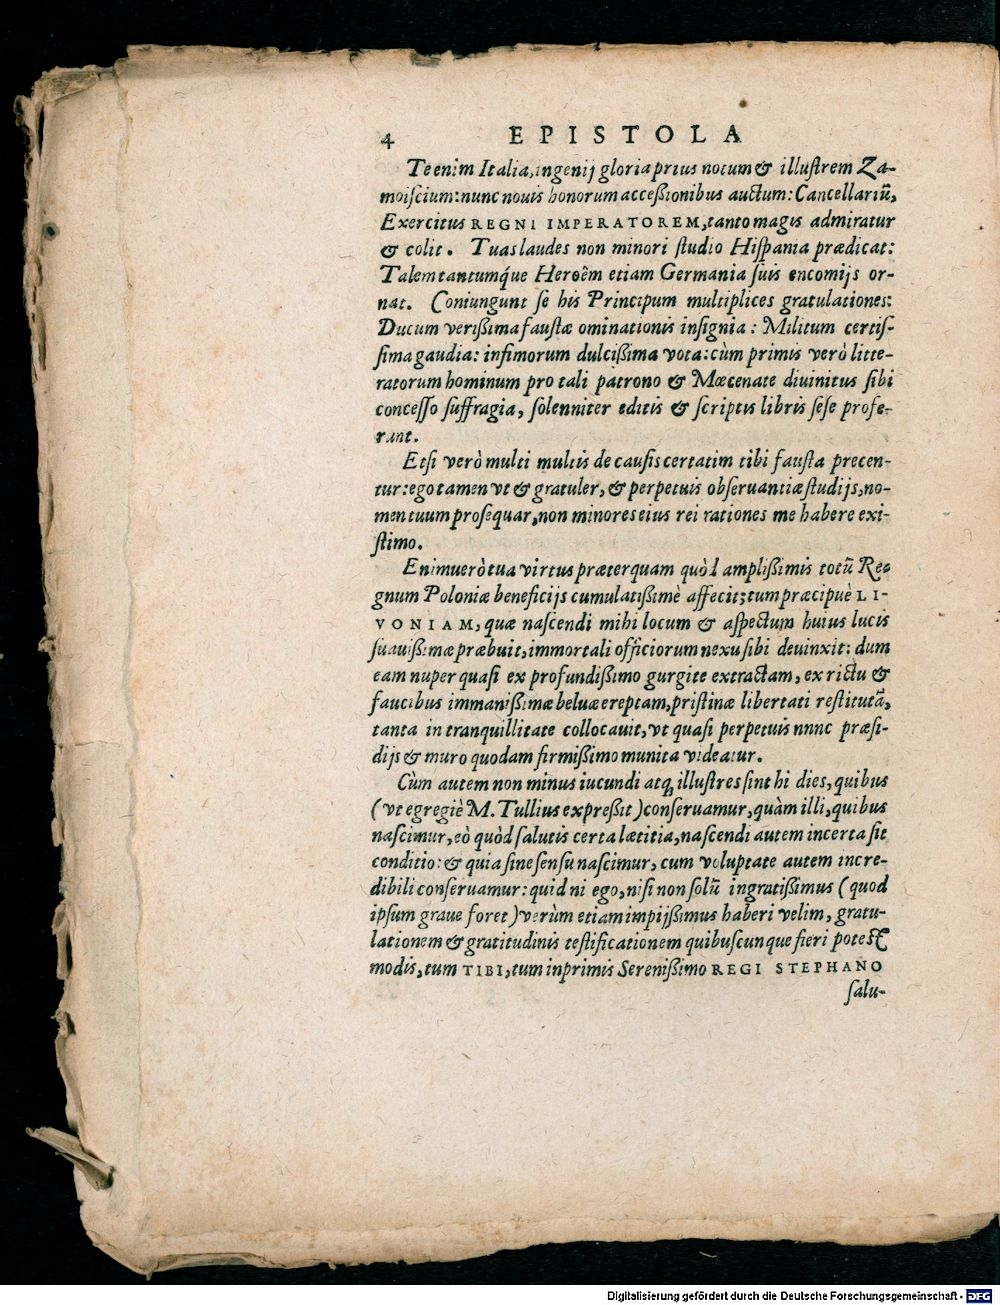 4 EPISTOLA
Te enim Italia, ingenij gloria prius notum & illuſtrem Za-
moiſcium: nunc nouis honorum acceßionibus auctum: Cancellariũ,
Exercitus REGNI IMPERATOREM, tanto magis admiratur
& colit. Tuas laudes non minori ſtudio Hiſpania prædicat:
Talem tantumq́ue Heroêm etiam Germania ſuis encomijs or-
nat. Coniungunt ſe his Principum multiplices gratulationes:
Ducum verißima fauſtæ ominationis inſignia: Militum certiſ-
ſima gaudia: infimorum dulcißima vota: cùm primis verò litte-
ratorum hominum pro tali patrono & Mœcenate diuinitus ſibi
conceſſo ſuffragia, ſolenniter editis & ſcriptis libris ſeſe profe-
rant.
Etſi verò multi multis de cauſis certatim tibi fauſta precen-
tur: ego tamen vt & gratuler, & perpetuis obſeruantiæ ſtudijs, no-
men tuum proſequar, non minores eius rei rationes me habere exi-
ſtimo.
Enimuerò tua virtus præterquam quòd amplißimis totũ Re-
gnum Poloniæ beneficijs cumulatißimè affecit; tum præcipuè LI-
VONIAM, quæ naſcendi mihi locum & aſpectum huius lucis
ſuauißimæ præbuit, immortali officiorum nexu ſibi deuinxit: dum
eam nuper quaſi ex profundißimo gurgite extractam, ex rictu &
faucibus immanißimæ beluæ ereptam, priſtinæ libertati reſtitutã,
tanta in tranquillitate collocauit, vt quaſi perpetuis nnnc præſi-
dijs & muro quodam firmißimo munita videatur.
Cùm autem non minus iucundi atq; illuſtres ſint hi dies, quibus
(vt egregiè M. Tullius expreßit) conſeruamur, quàm illi, quibus
naſcimur, eò quòd ſalutis certa lætitia, naſcendi autem incerta ſit
conditio: & quia ſine ſenſu naſcimur, cum voluptate autem incre-
dibili conſeruamur: quid ni ego, niſi non ſolũ ingratißimus (quod
ipſum graue foret) verùm etiam impijßimus haberi velim, gratu-
lationem & gratitudinis teſtificationem quibuſcunque fieri poteſt
modis, tum TIBI, tum inprimis Serenißimo REGI STEPHANO
ſalu-
Digitalisierung gefördert durch die Deutsche Forschungsgemeinschaft - DFG